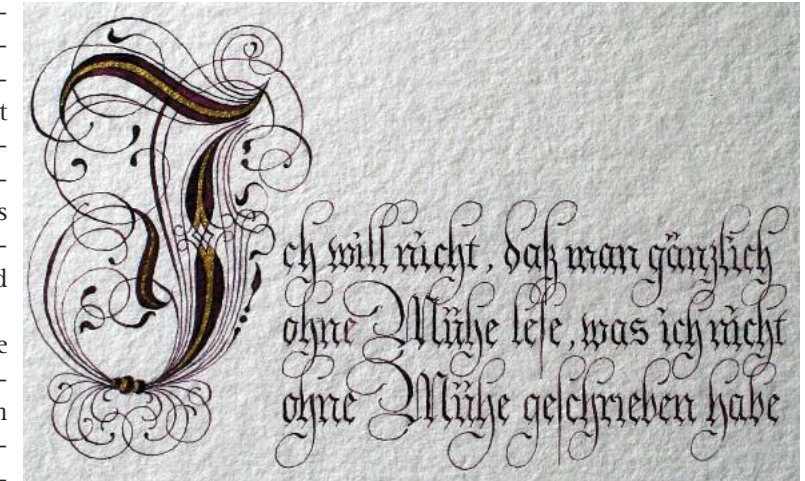 Ich will nicht, daß man gänzlich
ohne Mühe lese, was ich nicht
ohne Mühe geschrieben habe